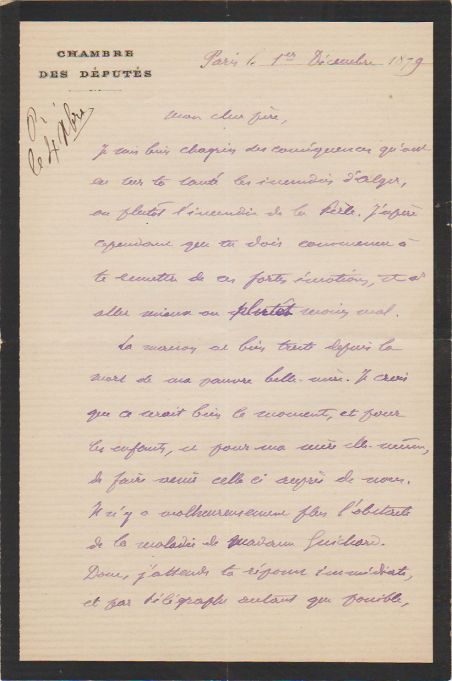 CHAMBRE
DES DÉPUTÉS
Paris le 1er Décembre 1879
le 4 Xbre
Mon cher père,
Je suis bien chagrin des conséquences qu'ont
eu sur ta santé les incendies d'Alger,
ou plutôt l'incendie de la Perle. J'espère
cependant que tu dois commencer à
te remettre de ces fortes émotions, et à
aller mieux ou plutôt moins mal.
La maison est bien triste depuis la
mort de ma pauvre belle-mère. Je crois
que ce serait bien le moment, et pour
les enfants, et pour ma mère elle-même,
de faire venir celle ci auprès de nous.
Il n'y a malheureusement plus l'obstacle
de la maladie de Madame Guichard.
Donc, j'attends ta réponse immédiate,
et par télégraphe autant que possible,